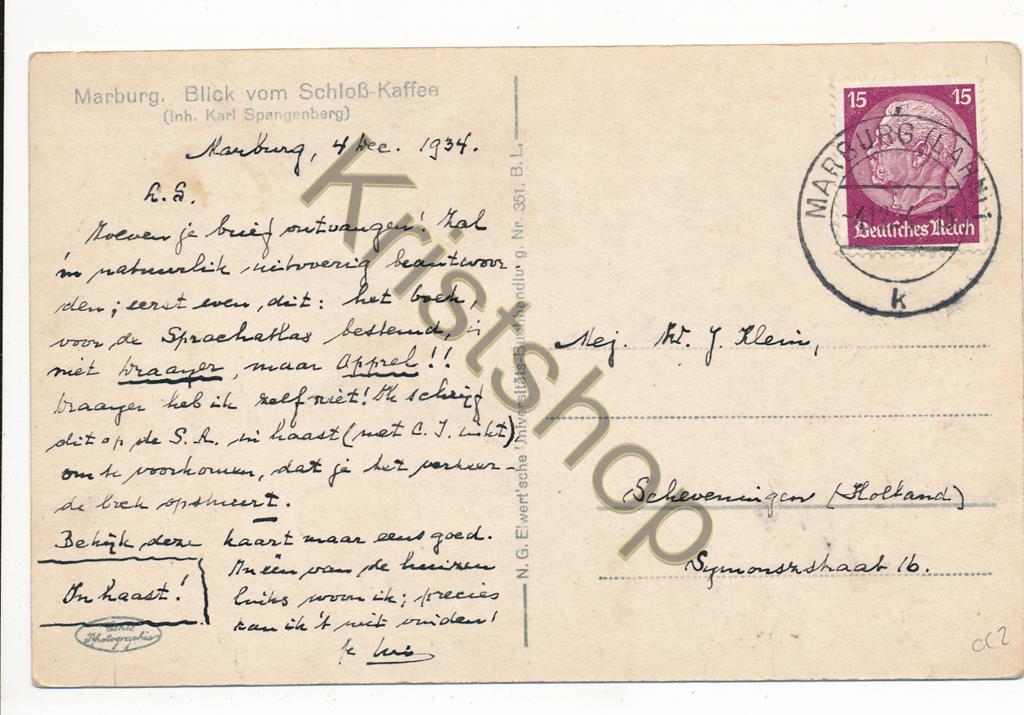 Marburg. Blick vom Schloß-Kaffee
(Inh. Karl Spangenberg)
Marburg, 4 Dec. 1934.
L.S.
Zoeven je brief ontvangen! Zal
'm natuurlik uitvoerig beantwoor-
den; eerst even dit: het boek,
voor de Sprachatlas bestemd, is
niet Draayer, maar Appel!!
Draayer heb ik zelf niet! Ik schrijf
dit op de S.A. in haast (met C.I. inkt)
om te voorkomen, dat je het verkeer-
de boek opstuurt.
Bekijk deze kaart maar eens goed.
In één van de huizen
links woon ik; precies
kan ik 't niet vinden!
In haast!
je
Echte
Photographie
N. G. Elwert'sche Universitäts-Buchhandlung. Nr. 351, B. L.
15 15
Deutsches Reich
MARBURG (LAHN) 1
k
Mej. J. Klein,
Scheveningen (Holland)
Symonszstraat 16.
CC2
Kristshop